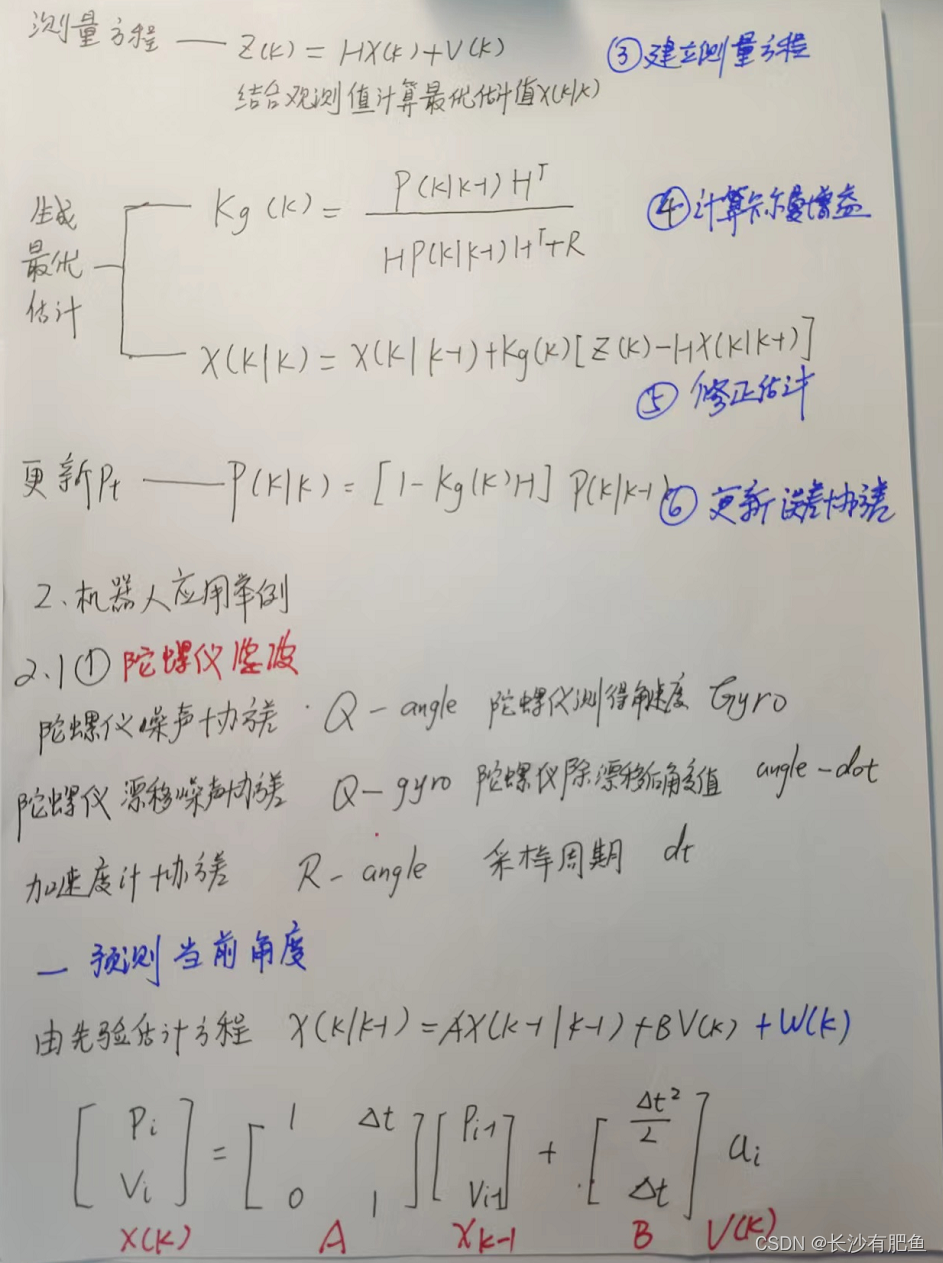 测量方程 — Z(k) = HX(k)+V(k) ③建立测量方程
结合观测值计算最优估计值X(k|k)
生成最优估计
Kg(k) = P(k|k-1)H^T / HP(k|k-1)H^T+R ④计算卡尔曼增益
X(k|k) = X(k|k-1)+Kg(k)[Z(k)-HX(k|k-1)]
⑤ 修正估计
更新Pt — P(k|k) = [1-Kg(k)H] P(k|k-1) ⑥ 更新误差协差
2、机器人应用举例
2.1① 陀螺仪滤波
陀螺仪噪声协差 Q-angle 陀螺仪测得角速度 Gyro
陀螺仪漂移噪声协差 Q-gyro 陀螺仪除漂移后角度值 angle-dot
加速度计协差 R-angle 采样周期 dt
一 预测当前角度
由先验估计方程 X(k|k-1) = AX(k-1|k-1)+BV(k)+W(k)
[Pi Vi] = [1 Δt 0 1][Pi-1 Vi-1] + [Δt²/2 Δt] ai
X(k) A Xk-1 B V(k)
CSDN @长沙有肥鱼